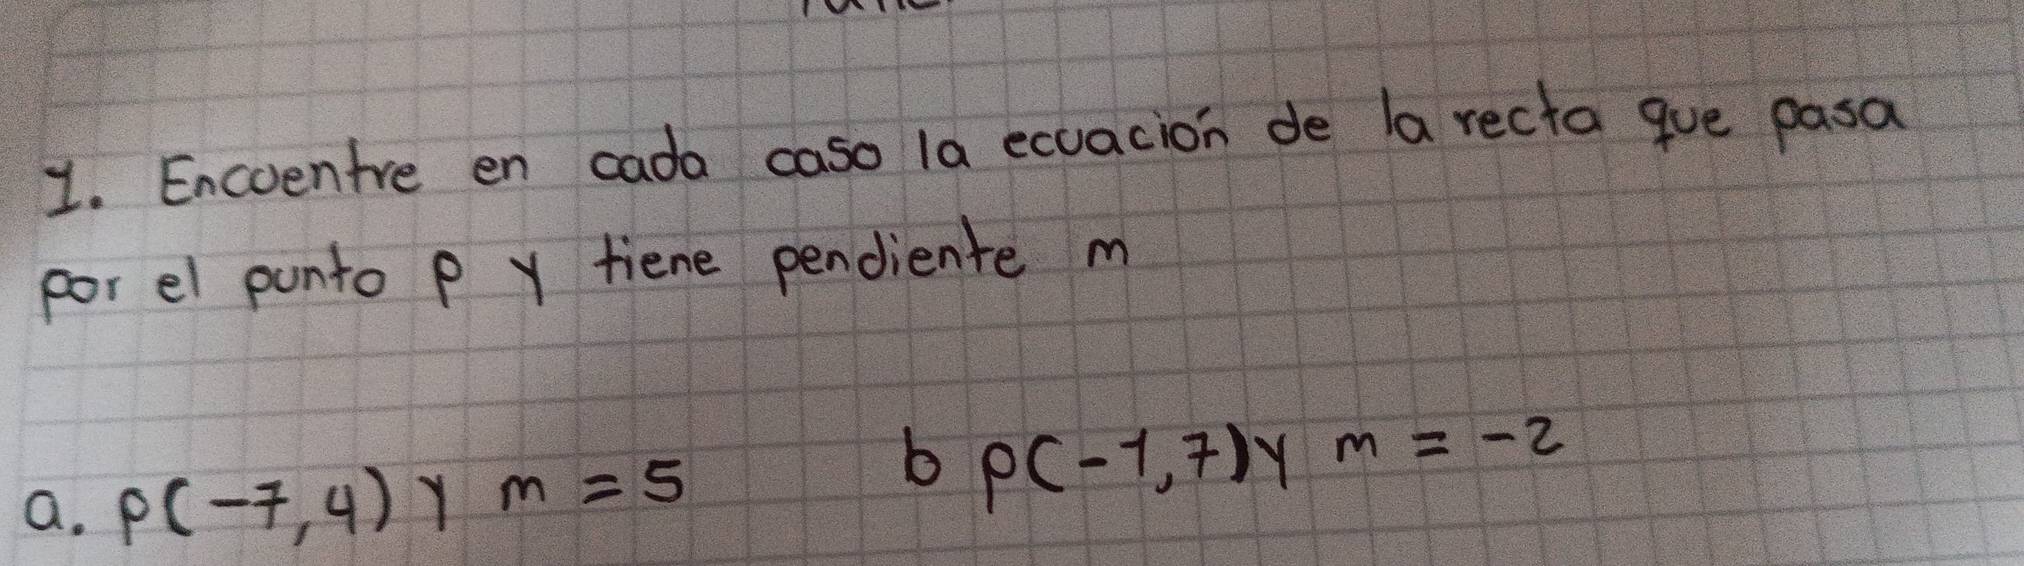 1. Encuentre en cada caso la ecuación de la recta que pasa
por el punto P y tiene pendiente m
a. P(-7,4) y m = 5
b P(-1,7) y m = -2